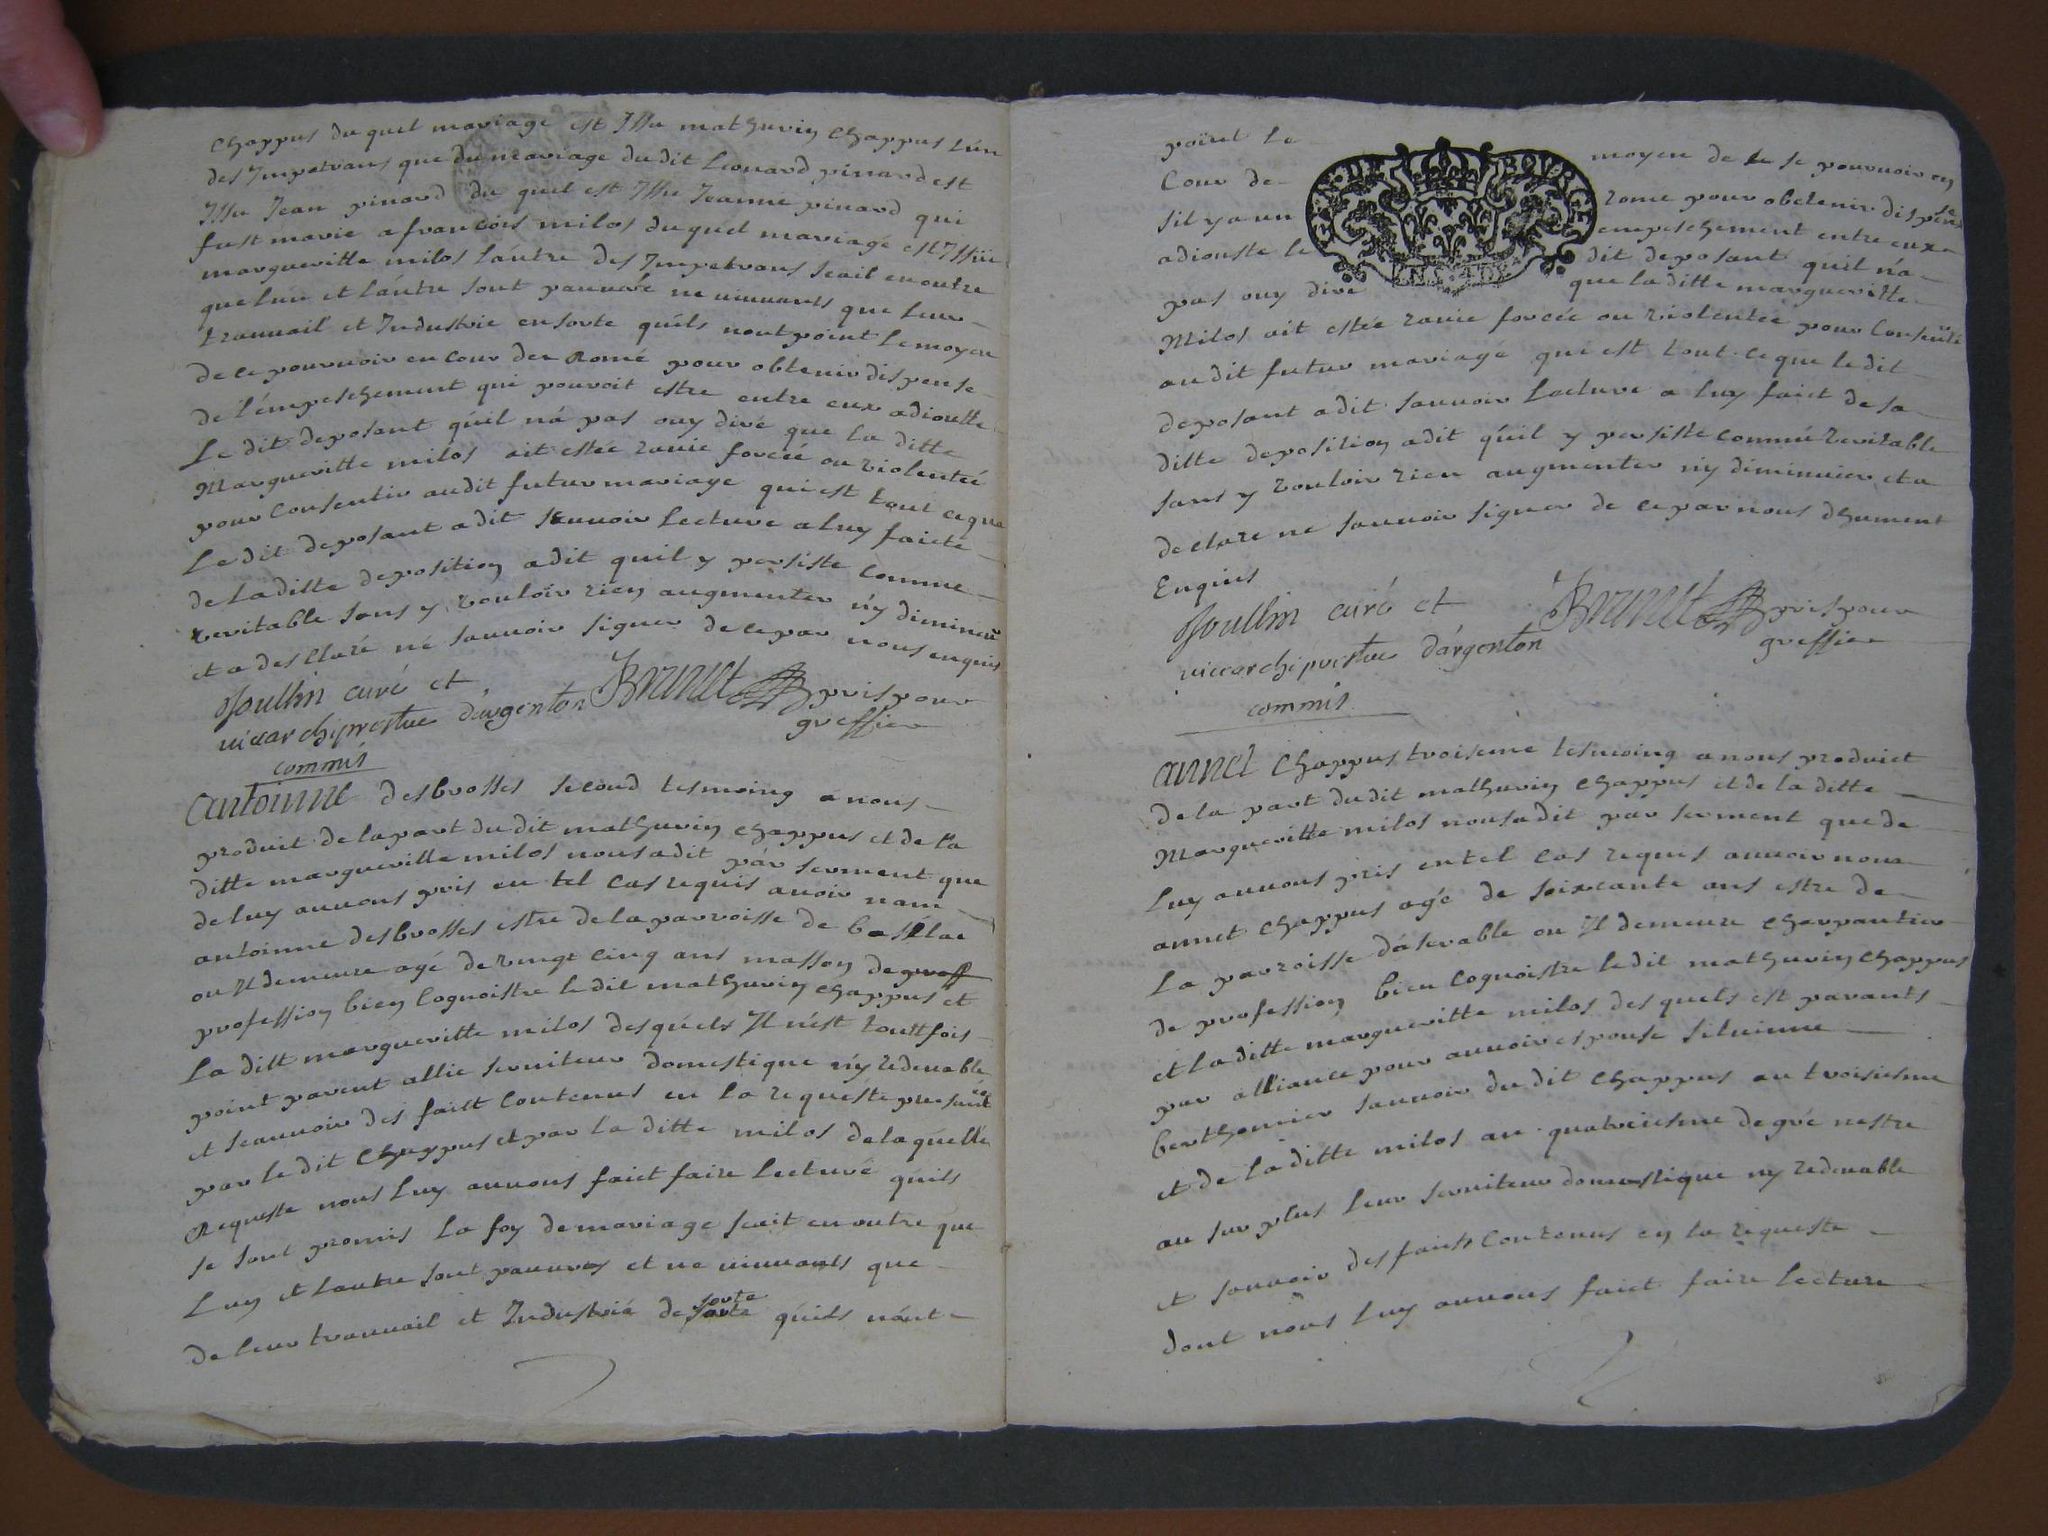 Chappus du quel mariage est Issu mathurin Chappus l'un
des Impetrans que du mariage du dit Leonard pinard est
Issu Jean pinard du quel est Issu Jeanne pinard qui
fust marie a francois milos du quel mariage est Issüe
margueritte milos l'autre des Impetrans scait en outre
que lun et l'autre sont pauuvre ne viuuants que leur
trauuail et Industrie en sorte qu'ils nont point le moyen
de ce pouruoir en cour de Rome pour obtenir dispense
de l'empeschement qui pouroit estre entre eux adioutte
Le dit deposant qu'il n'á pas ouy dire que la ditte
Margueritte milos ait estée rauie forcée ou violentée
pour Consentir audit futur mariage qui est tout ce que
Le dit deposant a dit sauuoir Lecture a luy faicte
de la ditte deposition a dit quil y persiste comme
veritable sans y vouloir rien augmenter n'y diminuer
et a desclaré ne sauuoir signer de ce par nous enquis
Joullin curé et Brunet pris pour
viccarchiprestre d'argenton greffier
commis
Antoinne desbrosses second tesmoing a nous
produit de la part du dit mathurin chappus et de la
ditte margueritte milos nous a dit par serment que
de luy auuons pris en tel cas requis auoir nom
antoinne desbrosses estre de la parroisse de
ou Il demeure agé de vingt cinq ans masson de
profession bien Cognoistre le dit mathurin chappus et
La ditt margueritte milos desquels Il n'est touttfois
point parent allie seruiteur domestique n'y redeuable
et sçauuoir des faict contenus en la requeste presentée
par le dit Chappus et par la ditte milos de laquelle
Requeste nous luy auuons faict faire lecture quils
se sont promis La foy de mariage scait en outre que
Lun et lautre sont pauuves et ne viuuants que
de leur trauuail et Industrie de sorte qu'ils n'ont
point le moyen de se pouruoir en
Cour de rome pour obetenir dispense
sil y a un empeschement entre eux
adiouste le dit deposant qu'il n'a
pas ouy dire que la ditte margueritte
Milos ait estée rauie forcée ou violentée pour Consentir
au dit futur mariage qui est tout ce que le dit
deposant a dit sauuoir Lecture a luy faict de sa
ditte deposition a dit qu'il y persiste comme veritable
sans y vouloir rien augmenter n'y diminuier et a
declare ne sauuoir signer de ce par nous dhument
Enquis
Joullin curé et Brunet pris pour
viccarchiprestre d'argenton greffier
commis
annet Chappus troiseme tesmoing a nous produict
de la part du dit mathurin chappus et de la ditte
Margueritte milos nous a dit par serment que de
Luy auuons pris en tel cas requis auuoir nom
annet chappus agé de soixcante ans estre de
La parroisse ou Il demeure charpantier
de profession bien cognoistre le dit mathurin chappus
et la ditte margueritte milos des quels est parants
par alliance pour auuoir espouse siluinne
berthomier sauuoir du dit Chappus au troisiesme
et de la ditte milos au quatreiesme degré n'estre
au sur plus leur seruiteur domestique ny redeuable
et sauuoir des faicts contenus en la requeste
dont nous luy auuons faict faire lecture